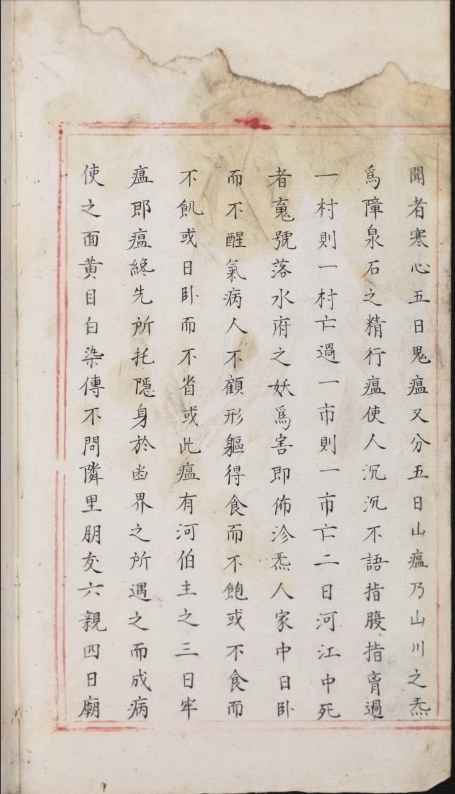 聞者寒心五曰鬼瘟又分五曰山瘟乃山川之炁
爲障泉石之精行瘟使人沉沉不語指腹指肓過
一村則一村亡過一市則一市亡二曰河江中死
者䰟號落水府之妖爲害即佈沴炁人家中日卧
而不醒氣病人不顧形軀得食而不飽或不食而
不飢或日卧而不省或此瘟有河伯主之三曰牢
瘟即瘟終先所托隱身於凾界之所遇之而成病
使之面黃目白染傳不問隣里朋友六親四曰廟